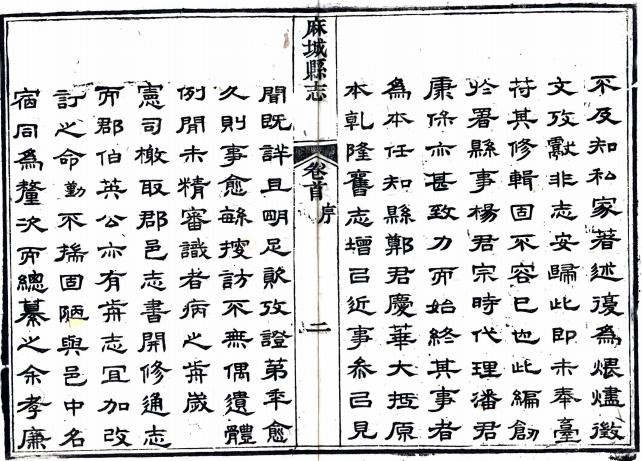 不及知私家著述復為煨燼徵
文攷獻非志安歸此即未奉臺
符其修輯固不容已也此編創
於署縣事楊君宗時代理潘君
康保亦甚致力而始終其事者
為本任知縣鄭君慶華大抵原
本乾隆舊志增㠯近事參㠯見
麻城縣志
卷首 序
二
聞既詳且明足攷證第年愈
久則事愈緐搜訪不無偶遺體
例間未精審識者病之前歲
憲司檄取郡邑志書開修通志
而郡伯英公亦有前志宜加改
訂之命勤不揣固陋與邑中名
宿同為釐次而總纂之余孝廉